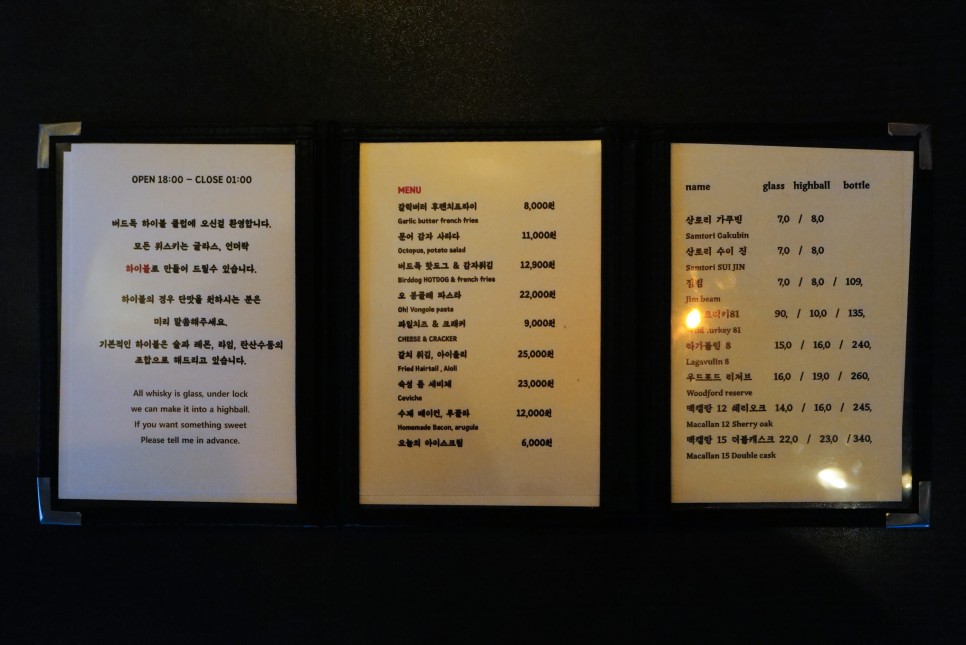 OPEN 18:00 – CLOSE 01:00
버드독 하이볼 클럽에 오신걸 환영합니다.
모든 위스키는 글라스, 언더락
하이볼로 만들어 드릴수 있습니다.
하이볼의 경우 단맛을 원하시는 분은
미리 말씀해주세요.
기본적인 하이볼은 술과 레몬, 라임, 탄산수등의
조합으로 해드리고 있습니다.
All whisky is glass, under lock
we can make it into a highball.
If you want something sweet
Please tell me in advance.
MENU
갈릭버터 후렌치프라이 8,000원
Garlic butter french fries
문어 감자 사라다 11,000원
Octopus, poteto salad
버드독 핫도그 & 감자튀김 12,900원
Birddog HOTDOG & french fries
오 봉골레 파스타 22,000원
Oh! Vongole pasta
과일치즈 & 크래커 9,000원
CHEESE & CRACKER
갈치 튀김, 아이올리 25,000원
Fried Hairtail , Aioli
숙성 돔 세비체 23,000원
Ceviche
수제 베이컨, 루꼴라 12,000원
Homemade Bacon, arugula
오늘의 아이스크림 6,000원
name glass highball bottle
산토리 가쿠빈 7,0 / 8,0
Samtori Gakubin
산토리 수이 진 7,0 / 8,0
Samtori SUI JIN
짐빔 7,0 / 8,0 / 109,
Jim beam
90, / 10,0 / 135,
turkey 81
라가불린 8 15,0 / 16,0 / 240,
Lagavulin 8
우드포드 리저브 16,0 / 19,0 / 260,
Woodford reserve
맥캘란 12 쉐리오크 14,0 / 16,0 / 245,
Macallan 12 Sherry oak
맥캘란 15 더블캐스크 22,0 / 23,0 / 340,
Macallan 15 Double cask